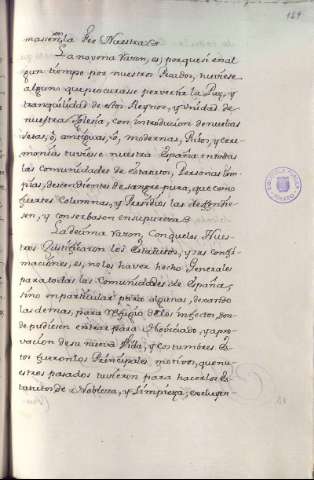 189
mas en la Fee Nuestra
La novena Razon, es, porque si en al
gun tiempo por nuestros Pecados, huviese
alguno que procurase pervertir la Paz, y
tranquilidad de estos Reynos, y Unidad de
nuestra Yglesia, con introducion de nuebas
Setas, ò, antiguas, ò, modernas, Ritos, y Cere-
monias tuviese nuestra España en todas
las Comunidades de Estatutos, Personas lim-
pias, descendientes de sangre pura, que como
fuertes Columnas, y Presidios las defendie-
sen, y conserbasen en su pureza
La decima Razon, Con que los Nues-
tros Justificaron los Estatutos, y sus Confir-
maciones, es, no los haver hecho Generales
para todas las Comunidades de España,
sino en particular para algunas, dexando
las demas, para refugio de los infectos, don-
de pudiesen entrar para
vacion de su nueva Vida, y costumbres Es-
tos fueron los Principales motivos, que nu-
estros pasados tuvieron para hacer los Es-
tatutos de Nobleza, y Limpieza, excluyen-